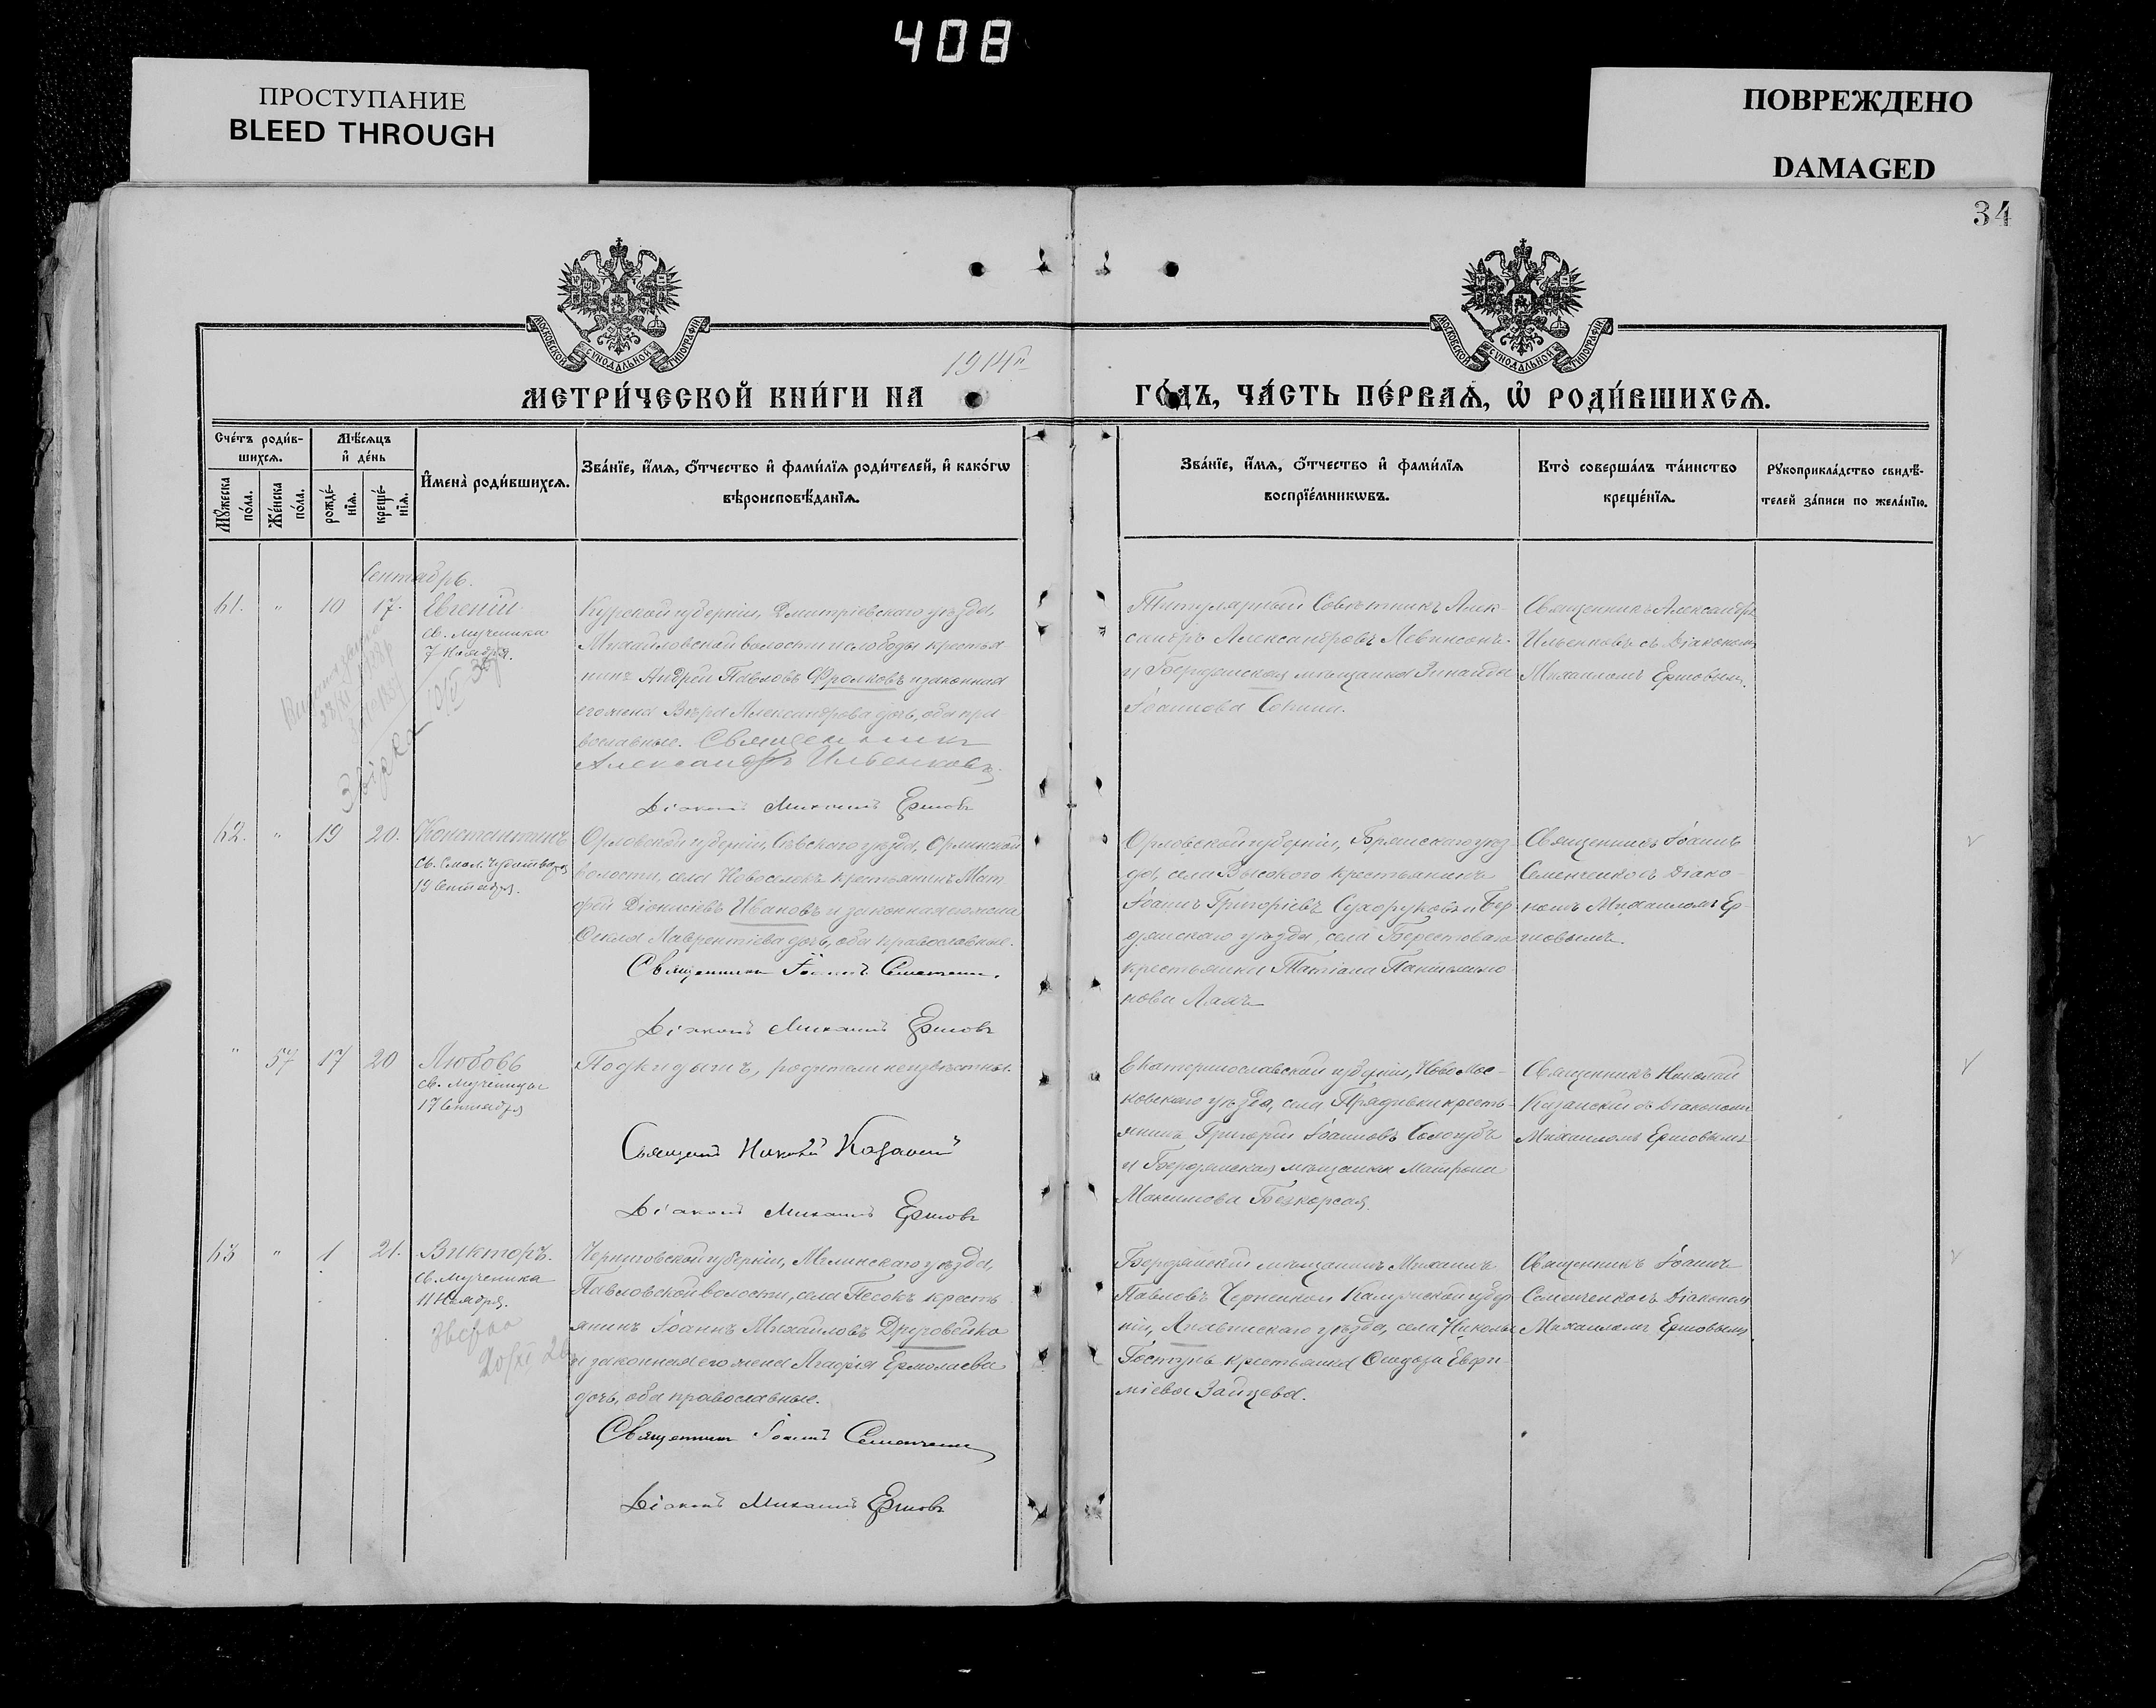 408
ПРОСТУПАНИЕ
BLEED THROUGH
ПОВРЕЖДЕНО
DAMAGED
34
МОСКОВСКОЙ СѴНОДАЛЬНОЙ ТИПОГРАФІИ
МОСКОВСКОЙ СѴНОДАЛЬНОЙ ТИПОГРАФІИ
1914й
МЕТРИ́ЧЕСКОЙ КНИ́ГИ НА
ГО́ДЪ, ЧА́СТЬ ПЕ́РВАѦ, Ѡ҆ РОДИ́ВШИХСѦ.
Сче́тъ роди́в-
шихсѧ.
Мѣ́сѧцъ
и҆ де́нь
Мꙋ́жеска
по́ла.
Же́нска
по́ла.
рожде́-
нїѧ.
креще́-
нїѧ.
И҆мена̀ роди́вшихсѧ.
Зва́нїе, и҆́мѧ, ѻ҆́тчество и҆ фами́лїѧ роди́телей, и҆ како́гѡ
вѣроисповѣ́данїѧ.
Зва́нїе, и҆́мѧ, ѻ҆́тчество и҆ фами́лїѧ
воспрїе́мникѡвъ.
Кто̀ соверша́лъ та́инство
креще́нїѧ.
Рꙋкоприкла́дство свидѣ́-
телей за́писи по жела́нїю.
Сентябрь.
61. " 10 17. Евгеній
св. мученика
7 Ноября.
Курской губерніи, Дмитріевскаго уѣзда,
Михайловской волости и слободы крестья
нинъ Андрей Павловъ Фролковъ и законная
его жена Вѣра Александрова дочь, оба пра
вославные. Священникъ
Александръ Ильенковъ.
Діаконъ Михаилъ Ершовъ
Титулярный Совѣтникъ Алек-
сандръ Александровъ Левинсонъ
и Бердянская мѣщанка Зинаида
Іоаннова
Священникъ Александръ
Ильенковъ съ Діакономъ
Михаиломъ Ершовымъ.
62. " 19 20. Константинъ
19 Сентября.
Орловской губерніи, Сѣвскаго уѣзда,
волости, села Новоселокъ крестьянинъ Мат
фей Діонисіевъ Ивановъ и законная его жена
Ѳекла Лаврентіева дочь, оба православные.
Священникъ Іоаннъ Семенченко.
Діаконъ Михаилъ Ершовъ
Орловской губерніи, Брянскаго уѣз
да, села Высокого крестьянинъ
Іоаннъ Григоріевъ Сухоруковъ и Бер
дянскаго уѣзда, села Берестоваго
крестьянка Татіана Пантелеимо
нова
Священникъ Іоаннъ
Семенченко съ Діако-
номъ Михаиломъ Ер-
шовымъ.
" 57 17 20 Любовь
св. Мученицы
17 Сентября
Подкидышъ, родители неизвѣстны.
Священникъ Николай Казанскій
Діаконъ Михаилъ Ершовъ
Екатеринославской губерніи, Ново Мос-
ковскаго уѣзда, села Прядивки кресть-
янинъ Григорій Іоанновъ Сологубъ
и Бердянская мѣщанка Матрона
Максимова
Священникъ Николай
Казанскій съ Діакономъ
Михаиломъ Ершовымъ
63 " 1 21. Викторъ.
св. Мученика
11 Ноября.
Черниговской губерніи, Мглинскаго уѣзда,
Павловской волости, села Песокъ кресть
янинъ Іоаннъ Михайловъ Друговейко
и законная его жена Агафія Ермолаева
дочь, оба православные.
Священникъ Іоаннъ Семенченко
Діаконъ Михаилъ Ершовъ
Бердянскій мѣщанинъ Михаилъ
Павловъ Калужской губер
ніи, уѣзда, села Николы
крестьянка Евфи-
міева Зайцева.
Священникъ Іоаннъ
Семенченко съ Діакономъ
Михаиломъ Ершовымъ